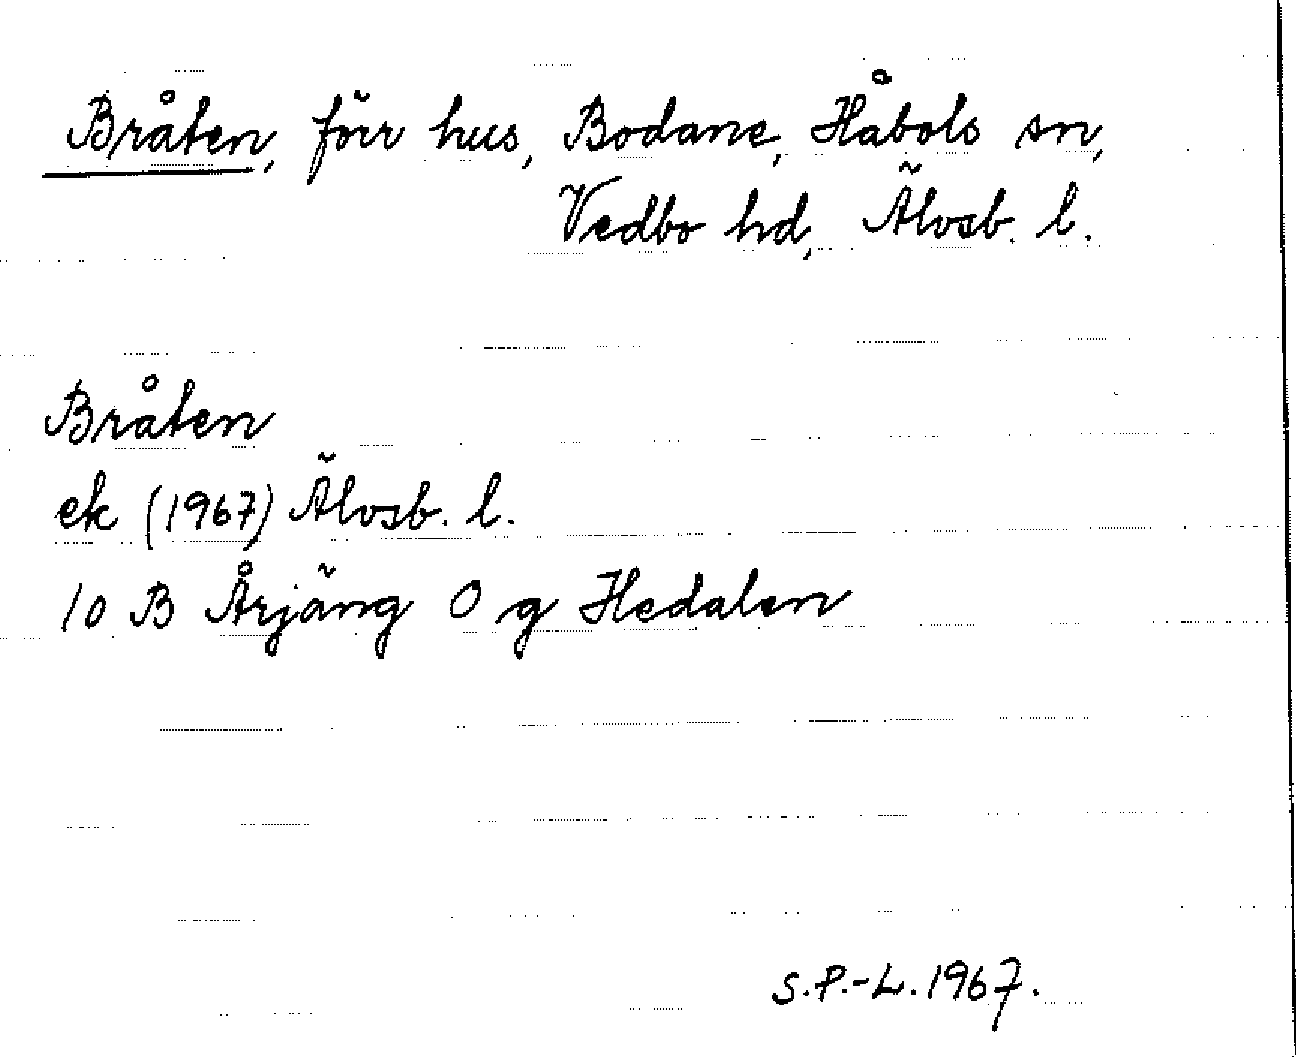 Bråten, förr hus, Bodane, Håbols sn,
Vedbo hd, Älvsb. l.
Bråten
ek (1967) Älvsb. l.
10 B Årjäng O g Hedalen
S.P.-L. 1967.